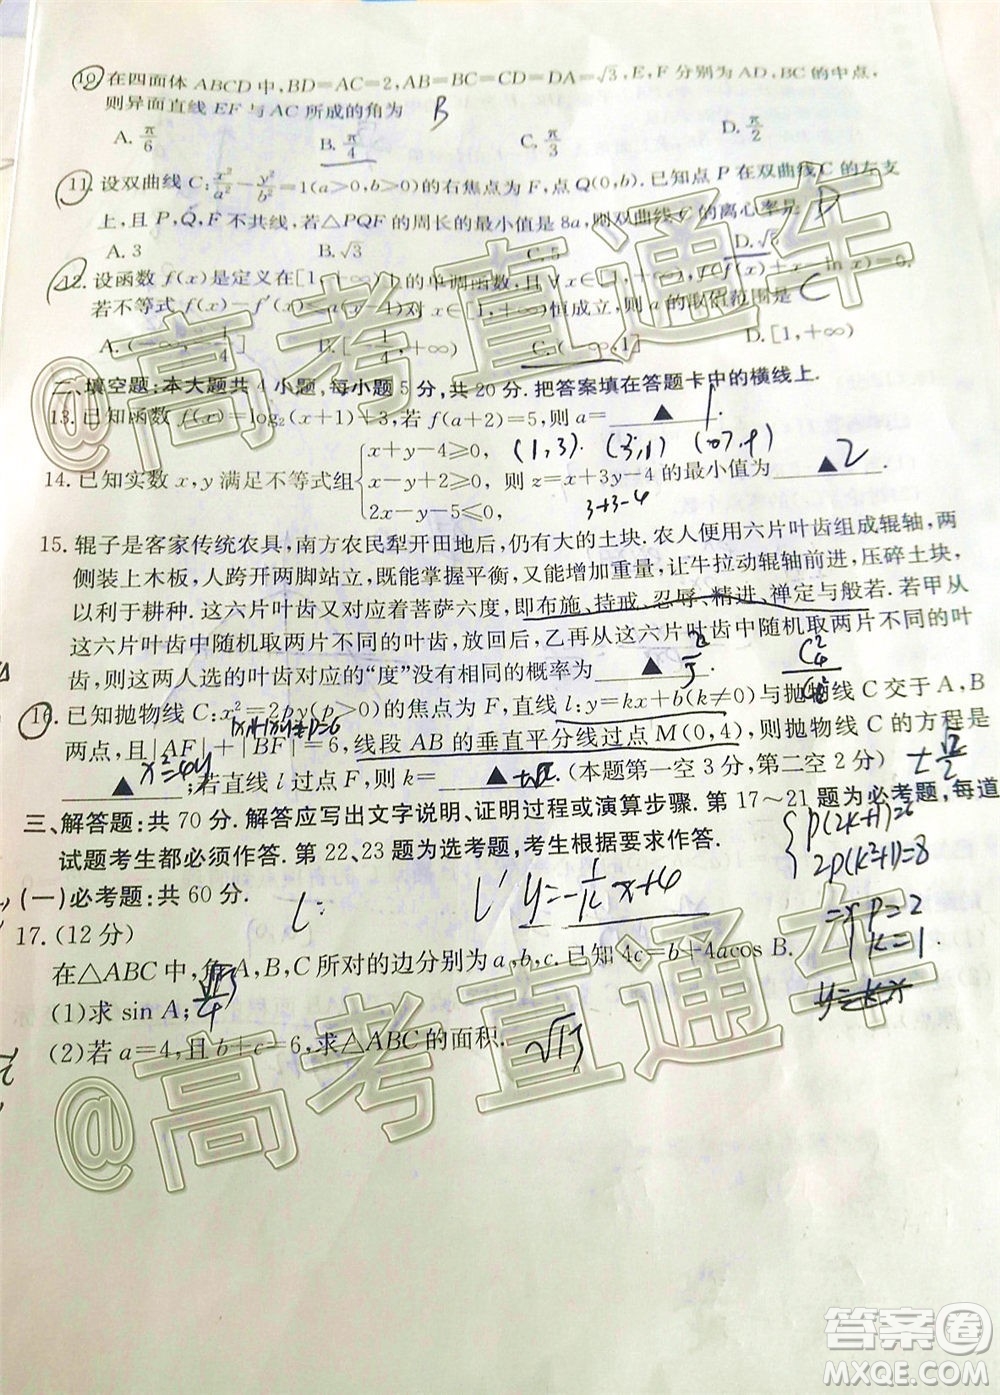 10. 在四面体 ABCD 中, BD=AC=2, AB=BC=CD=DA=√3, E, F 分别为 AD, BC 的中点,
则异面直线 EF 与 AC 所成的角为 B
A. π/6 B. π/4 C. π/3 D. π/2
11. 设双曲线 C: x²/a² - y²/b² = 1(a>0, b>0) 的右焦点为 F, 点 Q(0, b). 已知点 P 在双曲线 C 的左支
上, 且 P, Q, F 不共线, 若△PQF 的周长的最小值是 8a, 则双曲线 C 的离心率是 D
A. 3 B. √3 C. 5 D. √5
12. 设函数 f(x) 是定义在 [1, +∞) 上的单调函数, 且 ∀x∈[1, +∞), f(f(x)+x-ln x)=0.
若不等式 f(x)-f′(x)<a(x-1) 对 恒成立, 则 a 的取值范围是 C
D. [1, +∞)
二、填空题: 本大题共 4 小题, 每小题 5 分, 共 20 分. 把答案填在答题卡中的横线上.
13. 已知函数 f(x)=log₂(x+1)+3, 若 f(a+2)=5, 则 a= ▲ 1
(1,3). (3,1)
14. 已知实数 x, y 满足不等式组 {x+y-4⩾0, x-y+2⩾0, 2x-y-5⩽0, 则 z=x+3y-4 的最小值为 ▲ 2
3+3-4
15. 辊子是客家传统农具, 南方农民犁开田地后, 仍有大的土块. 农人便用六片叶齿组成辊轴, 两
侧装上木板, 人跨开两脚站立, 既能掌握平衡, 又能增加重量, 让牛拉动辊轴前进, 压碎土块,
以利于耕种. 这六片叶齿又对应着菩萨六度, 即布施、持戒、忍辱、精进、禅定与般若. 若甲从
这六片叶齿中随机取两片不同的叶齿, 放回后, 乙再从这六片叶齿中随机取两片不同的叶
齿, 则这两人选的叶齿对应的“度”没有相同的概率为 ▲ 2/5
16. 已知抛物线 C: x²=2py(p>0) 的焦点为 F, 直线 l: y=kx+b(k≠0) 与抛物线 C 交于 A, B
两点, 且 |AF|+|BF|=6, 线段 AB 的垂直平分线过点 M(0, 4), 则抛物线 C 的方程是
▲ x²=4y ; 若直线 l 过点 F, 则 k= ▲ . (本题第一空 3 分, 第二空 2 分) ±√2/2
三、解答题: 共 70 分. 解答应写出文字说明、证明过程或演算步骤. 第 17～21 题为必考题, 每道
试题考生都必须作答. 第 22、23 题为选考题, 考生根据要求作答.
2p(k²+1)=8
(一) 必考题: 共 60 分.
l: l′ y=-1/k x+4
p=2
k=1.
17. (12 分)
在△ABC 中, 角 A, B, C 所对的边分别为 a, b, c. 已知 4c=b+4acos B.
(1) 求 sin A; √15/4
(2) 若 a=4, 且 b+c=6, 求△ABC 的面积. √15
@高考直通车
@高考直通车
答案圈
MXQE.COM